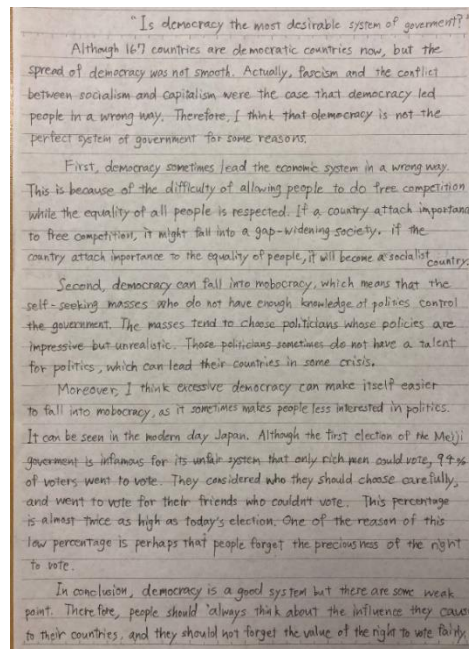 "Is democracy the most desirable system of goverment?"
Although 167 countries are democratic countries now, but the
spread of democracy was not smooth. Actually, fascism and the conflict
between socialism and capitalism were the case that democracy led
people in a wrong way. Therefore, I think that democracy is not the
perfect system of government for some reasons.
First, democracy sometimes lead the economic system in a wrong way.
This is because of the difficulty of allowing people to do free competition
while the equality of all people is respected. If a country attach importanc
to free competition, it might fall into a gap-widening society. if the
country attach importance to the equality of people, it will become a socialist country.
Second, democracy can fall into mobocracy, which means that the
self-seeking masses who do not have enough knowledge of politics control
the government. The masses tend to choose politicians whose policies are
impressive but unrealistic. Those politicians sometimes do not have a talent
for politics, which can lead their countries in some crisis.
Moreover, I think excessive democracy can make itself easier
to fall into mobocracy, as it sometimes makes people less interested in politics.
It can be seen in the modern day Japan. Although the first election of the Meiji
goverment is infamous for its unfair system that only rich men could vote, 94%
of voters went to vote. They considered who they should choose carefully,
and went to vote for their friends who couldn't vote. This percentage
is almost twice as high as today's election. One of the reason of this
low percentage is perhaps that people forget the preciousness of the right
to vote.
In conclusion, democracy is a good system but there are some weak
point. Therefore, people should always think about the influence they cause
to their countries, and they should not forget the value of the right to vote fairly.